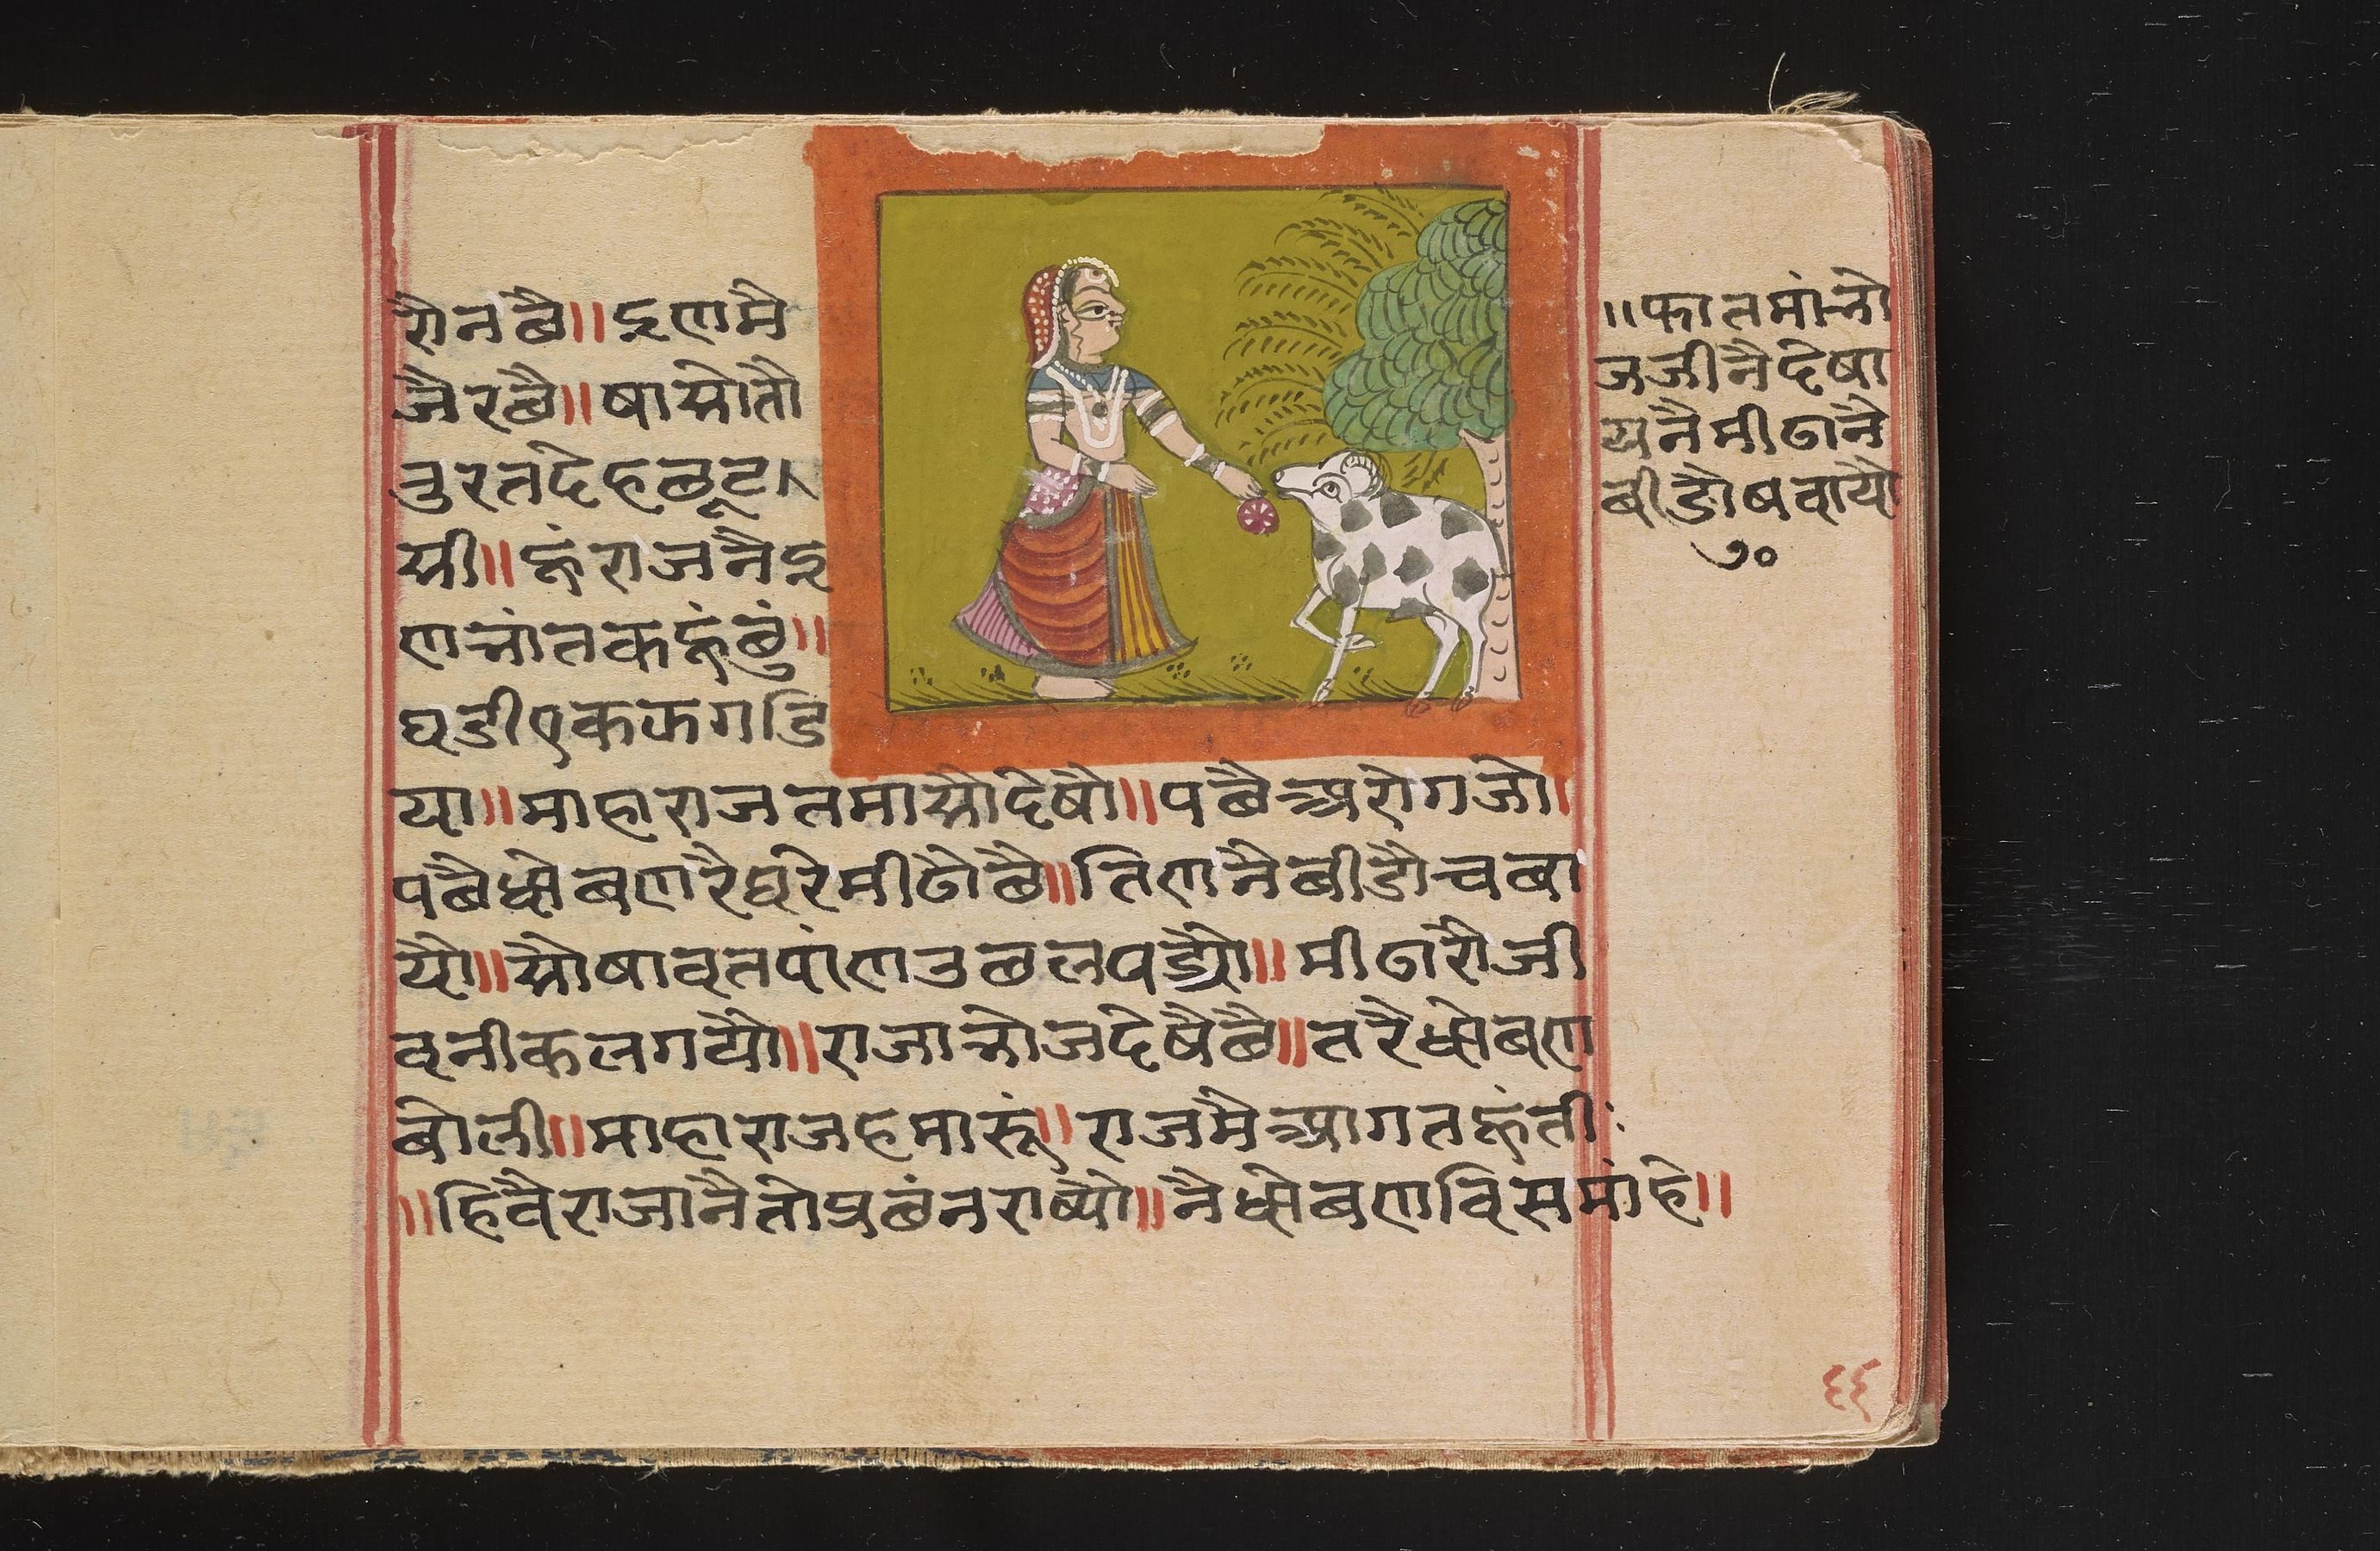 रोनछै॥इणमै
जैरछै॥षासोतौ
तुरतदेहछूटा
सी॥हुंराजनैइ
णभांतकहुंछुं॥
घडीएकऊगडि
या॥माहाराजतमासोदेषौ॥पछैअरोगजो।
पछैधोबणरैघरेमीढोछै॥तिणनैबीडोचबा
यौ॥सोषावतपांणउछलपड्यौ॥मीढारौजी
वनीकलगयौ॥राजाभोजदेषैछै॥तरैधोबण
बोली॥माहाराजहमारूं॥राजमैआगतहुंती:
॥हिवैराजानैतोप्रछंनराष्यौ॥नैधोबणविसमांहे॥
॥फातमांभो
जजीनैदेषा
यनैमीढानै
बीडोषवायो
७०
६६